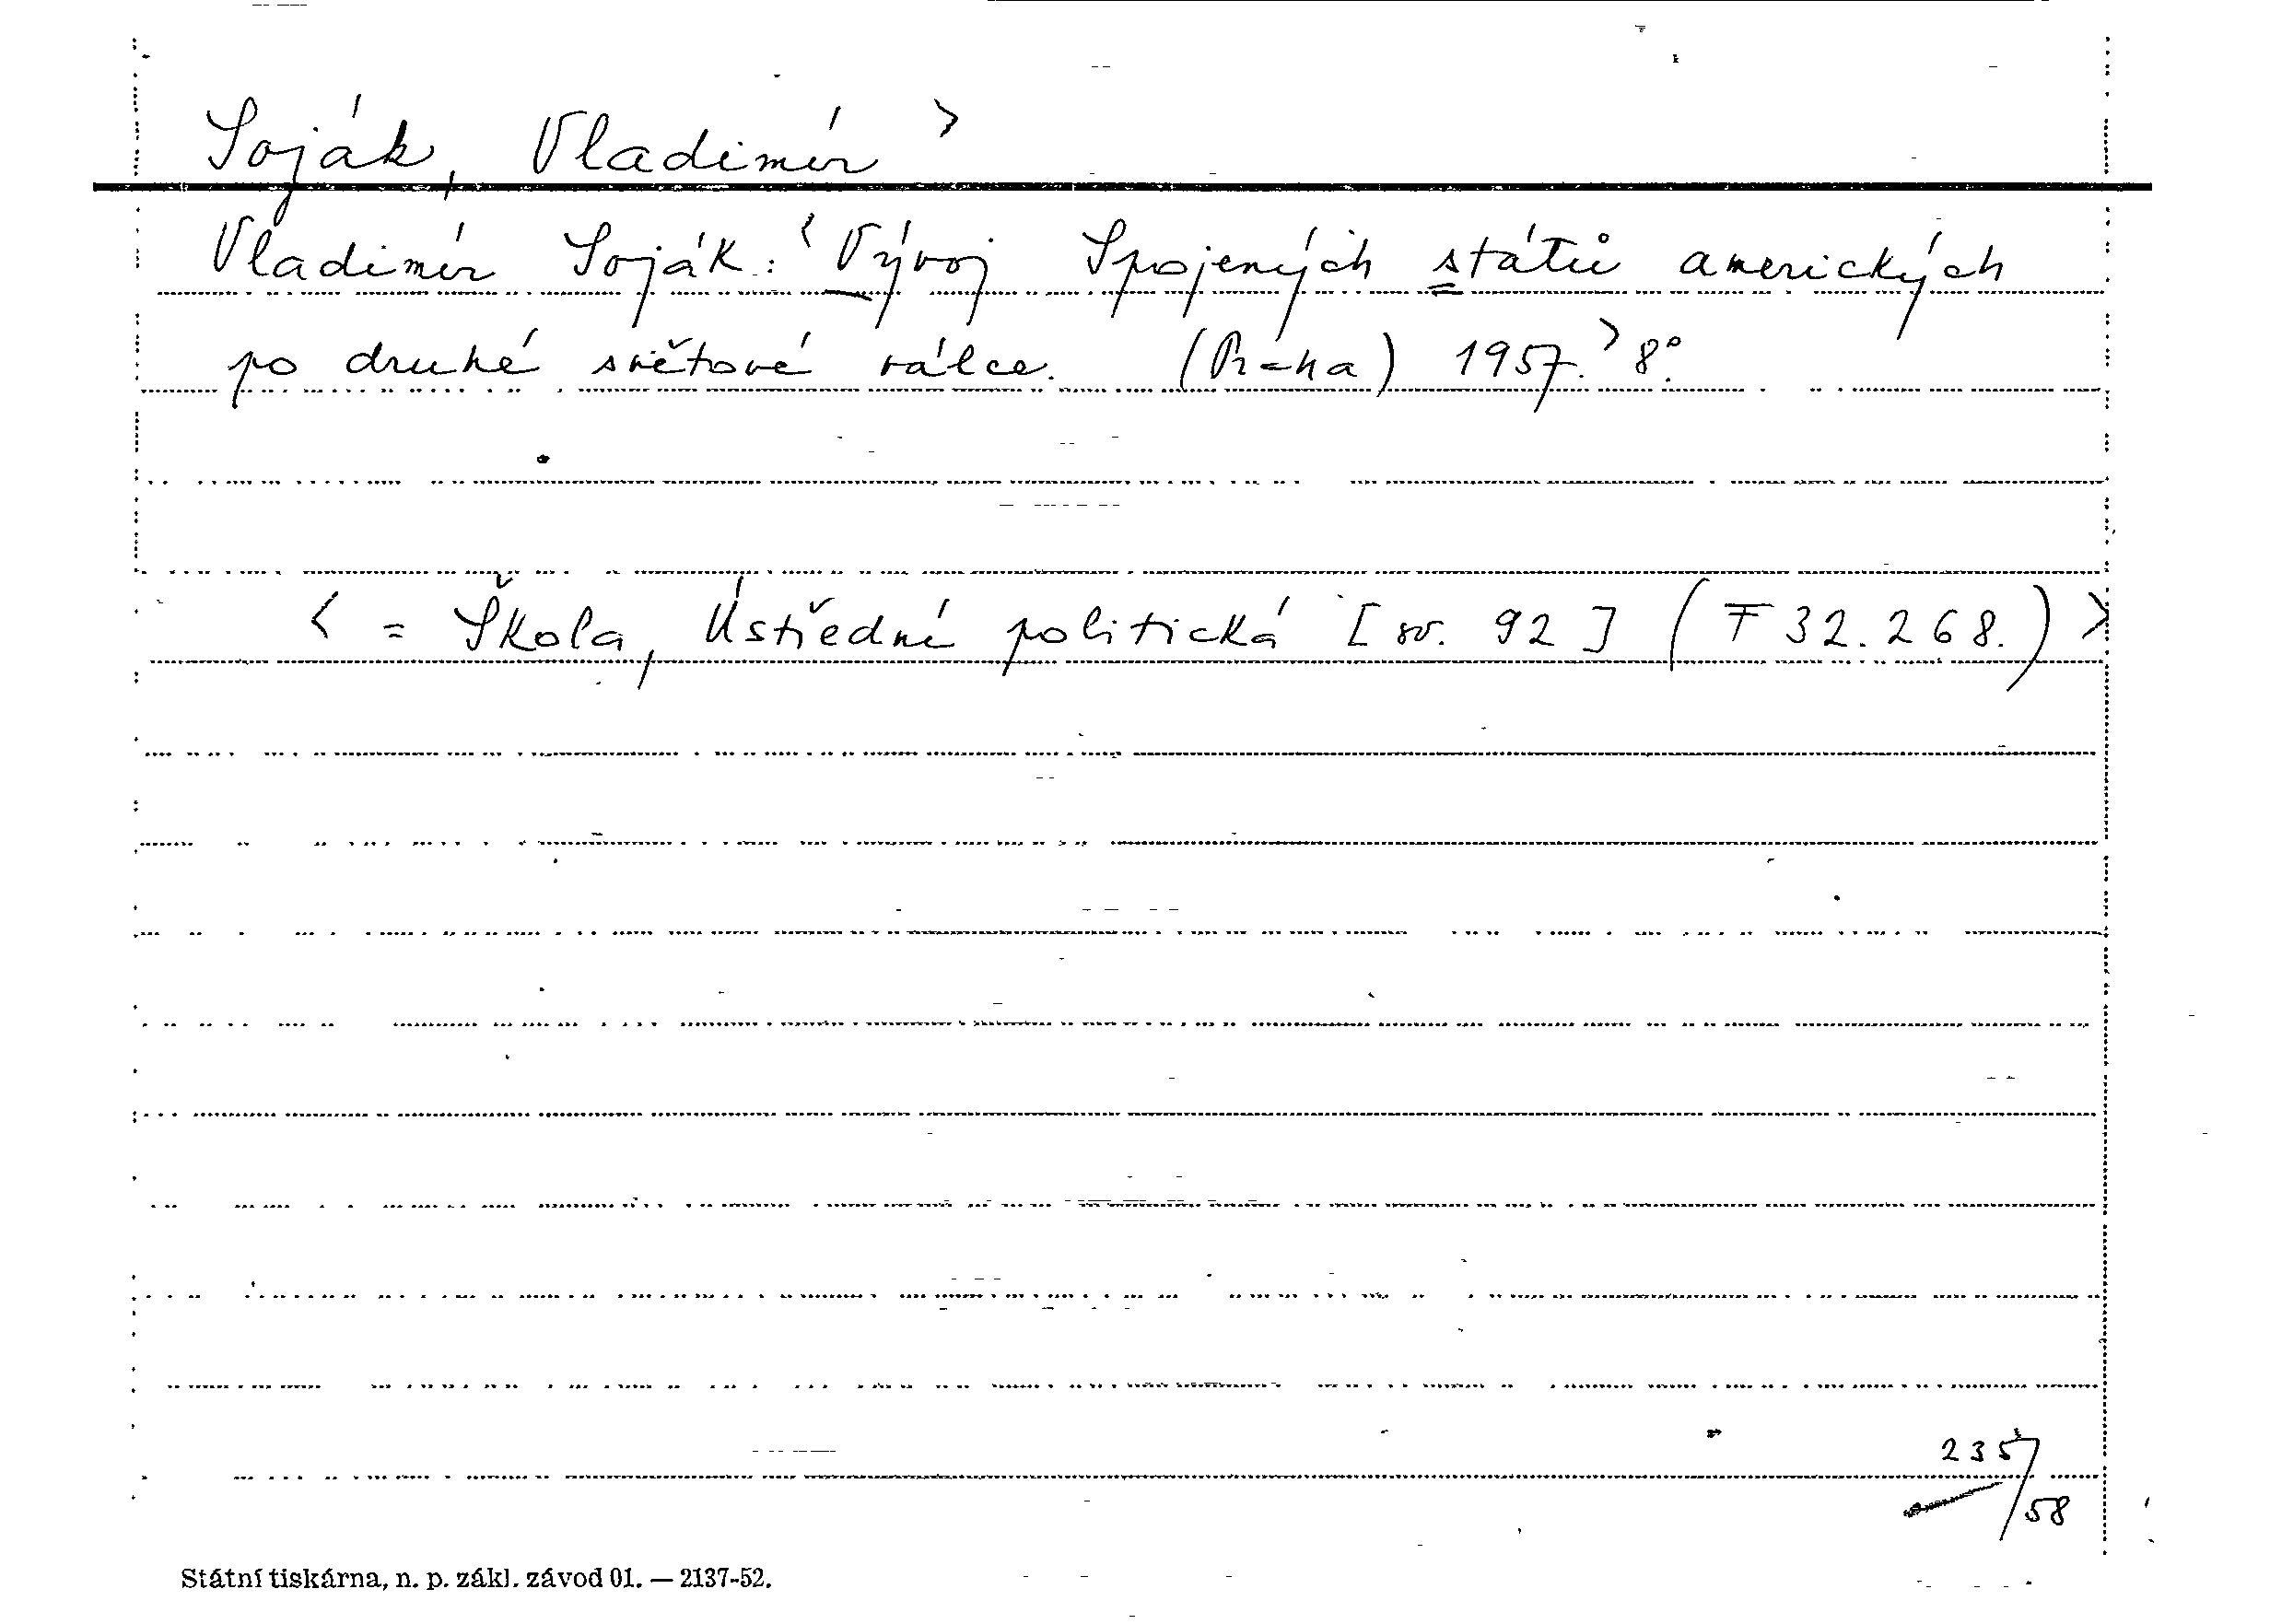 Soják, Vladimír >
Vladimír Soják: < Vývoj Spojených států amerických
po druhé světové válce. (Praha) 1957. > 8°.
< = Škola, Ústřední politická [sv. 92] (F 32.268.) >
235/58
Státní tiskárna, n. p. zákl. závod 01. — 2137-52.